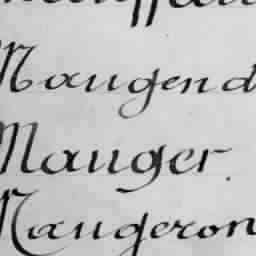 Maugend
Mauger.
Maugeron